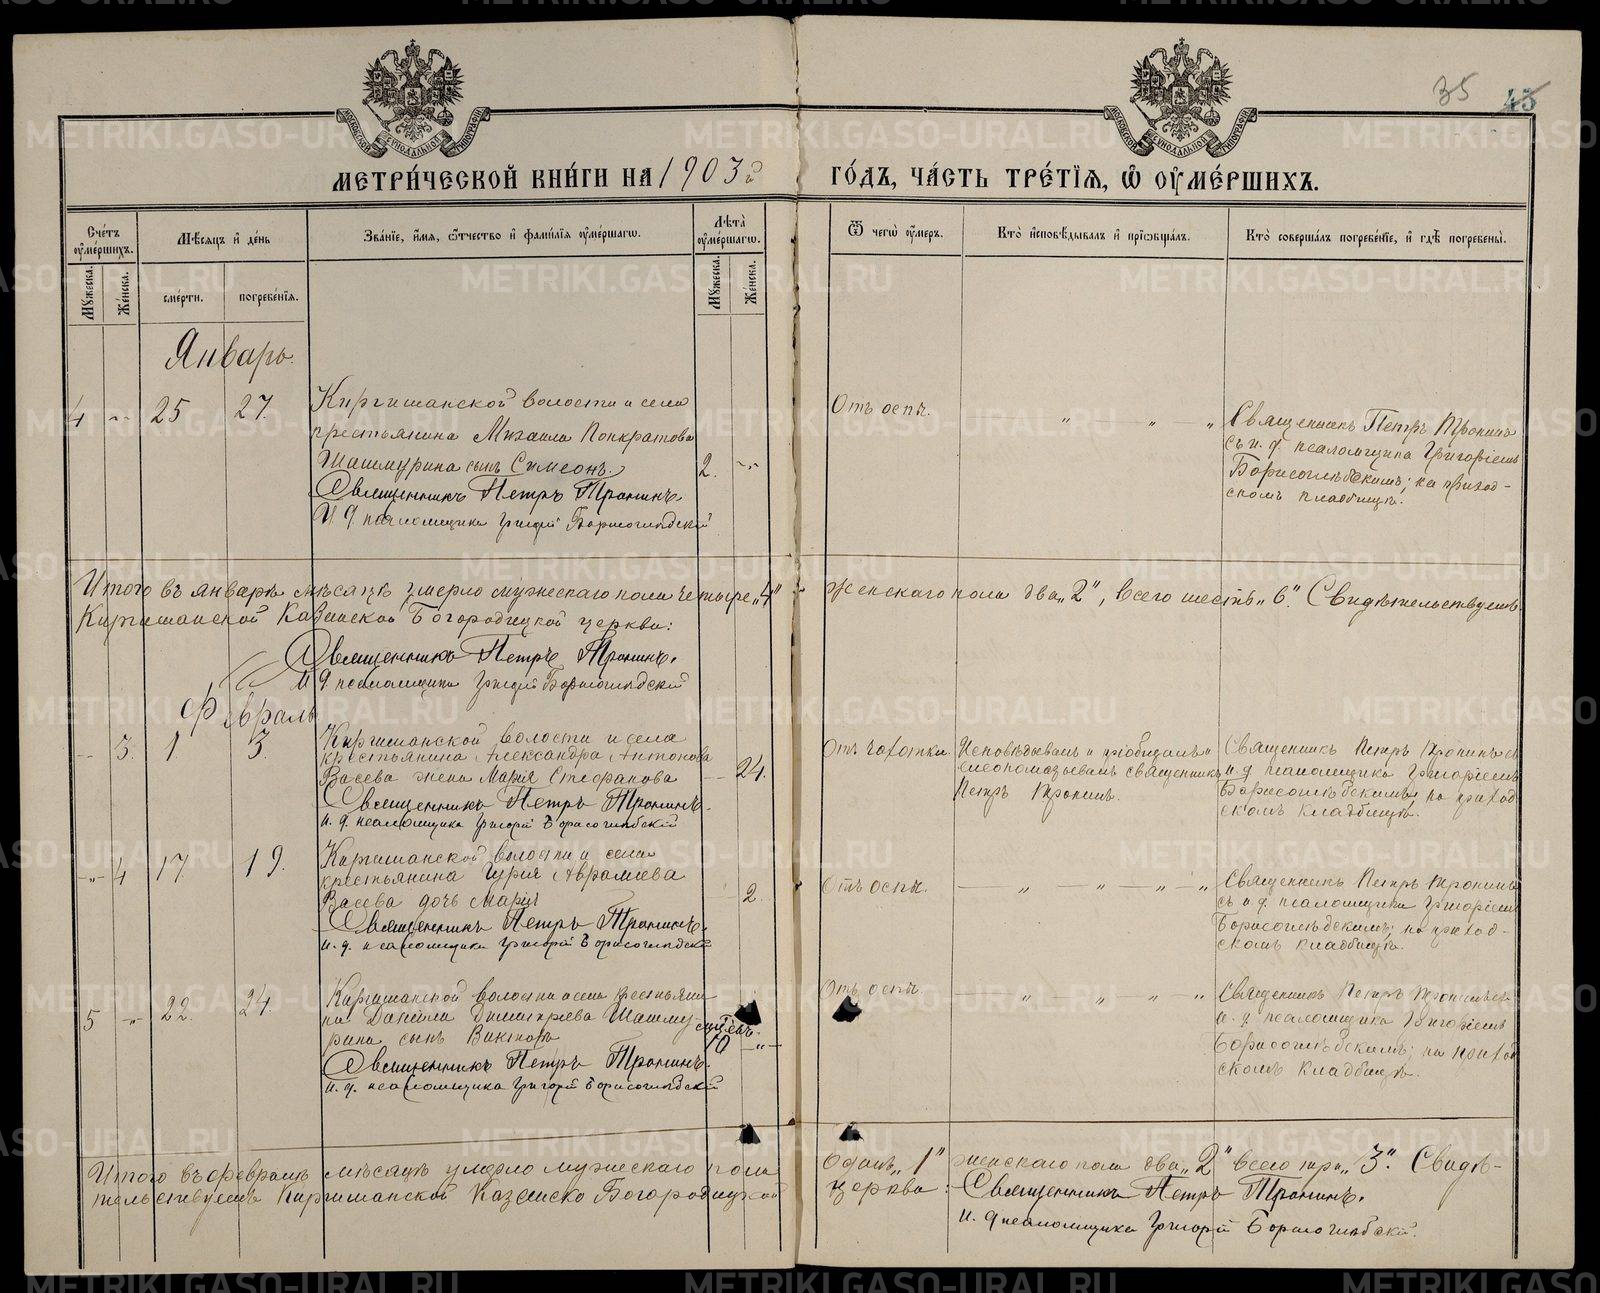 35 45
МЕТРИ́ЧЕСКОЙ КНИ́ГИ НА 1903 й ГО́ДЪ, ЧА́СТЬ ТРЕ́ТІѦ, Ѡ҆ ОУ҆МЕ́РШИХЪ.
Сче́тъ оу҆ме́ршихъ.
Мѣ́сяцъ и҆ де́нь
Зва́нїе, и҆́мѧ, ѻ҆́тчество и҆ фами́лїѧ оу҆ме́ршагѡ.
Лѣта̀ оу҆ме́ршагѡ.
Ѿ чегѡ̀ оу҆́меръ.
Кто̀ и҆сповѣ́дывалъ и҆ прїѡбща́лъ.
Кто̀ соверша́лъ погребе́нїе, и҆ гдѣ̀ погребены̀.
Мꙋ́жеска.
Же́нска.
сме́рти.
погребе́нїѧ.
Мꙋ́жеска.
Же́нска.
Январь.
4 -"- 25 27. Киргишанской волости и села
крестьянина Михаила Понкратова
Шашмурина сынъ Симеонъ. 2. -"-
Священникъ Петръ Тронинъ.
И д псаломщика Григорій Борисоглѣбскій
Отъ оспы.
" " "
Священникъ Петръ Тронинъ
съ и. д. псаломщика Григоріемъ
Борисоглѣбскимъ; на приход-
скомъ кладбищѣ.
Итого въ январѣ мѣсяцѣ умерло мужескаго пола четыре „4" женскаго пола два „2", всего шесть „6". Свидѣтельствуемъ
Киргишанской Казанской Богородицкой церкви:
Священникъ Петръ Тронинъ.
И д псаломщика Григорій Борисоглѣбскій
Февраль
3. 1 3. Киргишанской волости и села
крестьянина Александра Антонова
Васева жена Марія Стефанова 24.
Священникъ Петръ Тронинъ.
и. д. псаломщика Григорій Борисоглѣбскій
Отъ чахотки.
Исповѣдывалъ и пріобщалъ и
елеопомазывалъ священникъ
Петръ Тронинъ.
Священникъ Петръ Тронинъ съ
и. д. псаломщика Григоріемъ
Борисоглѣбскимъ; на приход-
скомъ кладбищѣ.
-"- 4 17. 19. Киргишанской волости и села
крестьянина Гурія Аврамиева
Васева дочь Марія 2.
Священникъ Петръ Тронинъ.
и. д. псаломщика Григорій Борисоглѣбскій
Отъ оспы.
" " " "
Священникъ Петръ Тронинъ
съ и д. псаломщика Григоріемъ
Борисоглѣбскимъ; на приход-
скомъ кладбищѣ.
5 -"- 22. 24. Киргишанской волости и села крестьяни
на Данила Димитріева Шашму-
рина сынъ Викторъ 10 -"-
Священникъ Петръ Тронинъ.
и. д. псаломщика Григорій Борисоглѣбскій
Отъ оспы.
" " " "
Священникъ Петръ Тронинъ съ
и. д. псаломщика Григоріемъ
Борисоглѣбскимъ; на приход
скомъ кладбищѣ.
Итого въ февралѣ мѣсяцѣ умерло мужескаго пола одинъ „1" женскаго пола два „2" всего три „3". Свидѣ-
тельствуемъ Киргишанской Казанско Богородицкой церкви:
Священникъ Петръ Тронинъ.
и. д псаломщика Григорій Борисоглѣбскій.
METRIKI.GASO-URAL.RU